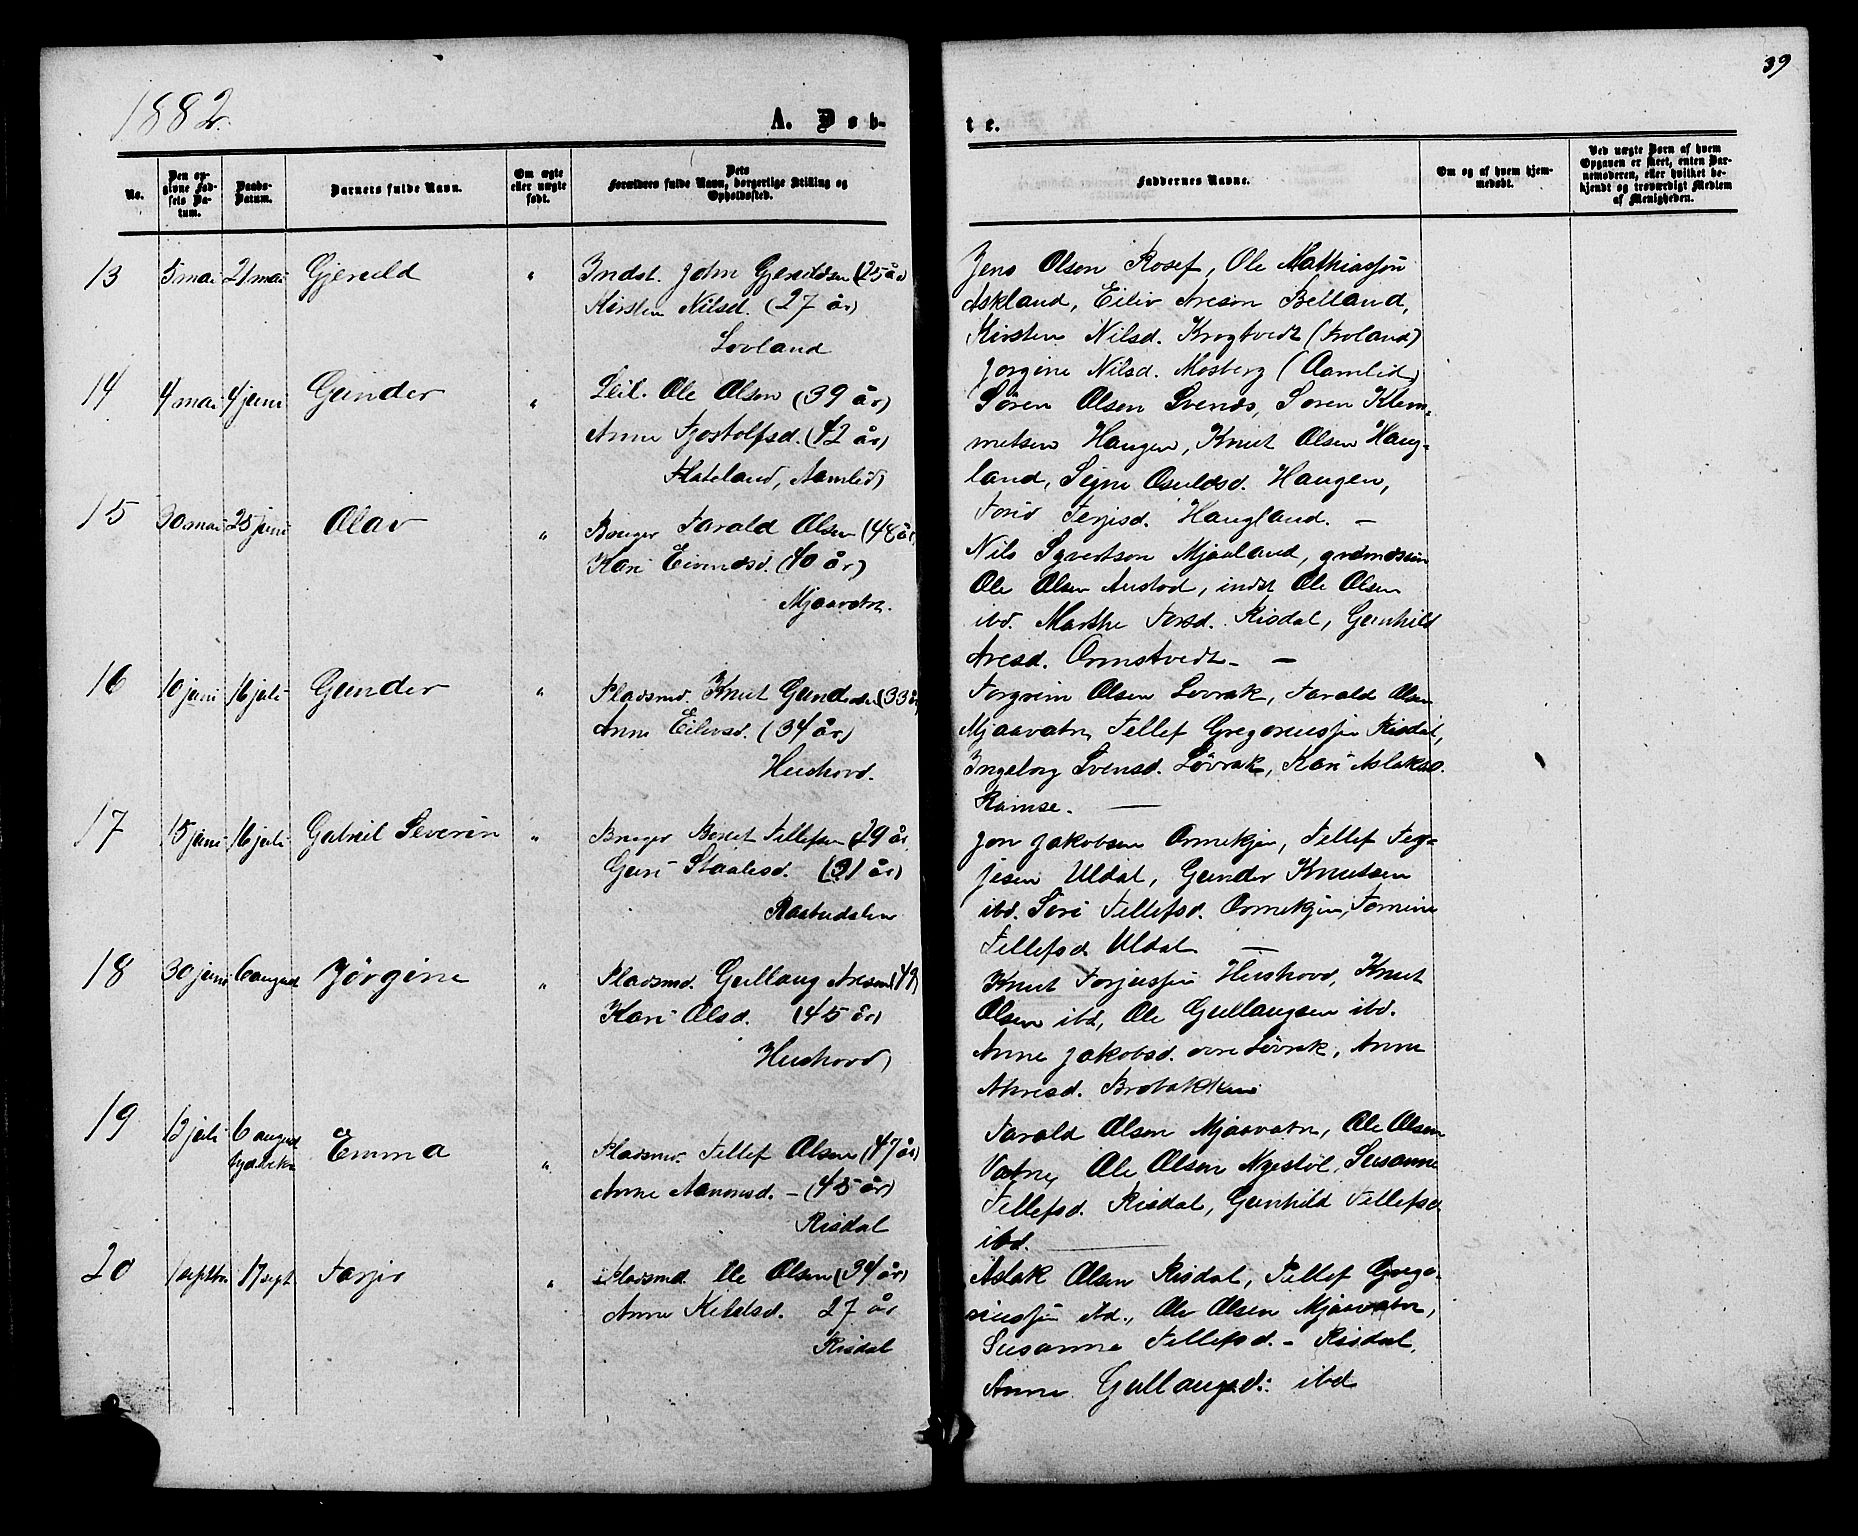 39
1882.
A. Døb-
te.
No.
Den opgivne Fødsels Datum.
Daabs-Datum.
Barnets fulde Navn.
Om ægte eller uægte født.
Dets Forældres fulde Navn, borgerlige Stilling og Opholdssted.
Faddernes Navne.
Om og af hvem hjemmedøbt.
Ved uægte Børn af hvem Opgaven er skeet, enten Barnemoderen, eller hvilket bekjendt og troværdigt Medlem af Menigheden.
13 5 mai 21 mai Gjeruld " Indst. John Gjeruldsen (25 år)
Kirsten Nilsd. (27 år)
Lovland
Jens Olsen Rosef, Ole Mathiassøn
Askland, Eiliv Aresen Belland,
Kirsten Nilsd. Krogtvedt (Froland)
Jorgine Nilsd. Mosberg (Aamlid)
14 4 mai 4 juni Gunder " Leil. Ole Olsen (39 år)
Anne Tjostolfsd. (42 år)
Hateland, Aamlid)
Søren Olsen Svends, Søren Klem-
metsen Haugen, Knut Olsen Haug-
land, Signe Osuldsd. Haugen,
Torid Terjisd. Haugland. —
15 30 mai 25 juni Olav " Bruger Tarald Olsen (48 år)
Kari Eivindsd. (40 år)
Mjaavatn.
Nils Syvertsen Mjaaland, grdmdssøn
Ole Olsen Austad, indst Ole Olsen
ibd. Marthe Torsd. Risdal, Gunhild
Aresd. Ormstvedt. —
16 10 juni 16 juli Gunder " Pladsmd. Knut Gundersen (33 år)
Anne Eilevsd. (34 år)
Hushovd.
Torgrim Olsen Løvrak, Tarald Olsen
Mjaavatn, Tellef Gregoriussøn Risdal,
Ingeborg Svensd. Løvrak, Kari Aslaksd.
Ramse. —
17 15 juni 16 juli Gabriel Severin " Bruger Berut Tellefsen (29 år)
Guri Staalesd. — (31 år)
Rasbudalen
Jon Jakobsen Ormekjer, Tellef Ter-
jesen Uldal, Gunder Knutsen
ibd. Siri Tellefsd. Ormekjer, Tomine
Tellefsd. Uldal —
18 30 juni 6 august Jørgine " Pladsmd. Gullaug Aresen (49)
Kari Olsd. (45 år)
Hushovd)
Knut Torjussøn Hushovd, Knut
Olsen ibd, Ole Gullaugsen ibd.
Anne Jakobsd. øvre Løvrak, Anne
Akresd. Brobakken
19 12 juli 6 august Emma " Pladsmd. Tellef Olsen (47 år)
Anne Aanonsd. — (45 år)
Risdal
Tarald Olsen Mjaavatn, Ole Olsen
Vatne, Ole Olsen Nyestøl, Susanne
Tellefsd. Risdal, Gunhild Tellefsd
ibd. —
20 1 septbr 17 sept. Torjer " Pladsmd Ole Olsen (34 år)
Anne Kittelsd. 27 år
Risdal
Aslak Olsen Risdal, Tellef Grego-
riussøn ibd., Ole Olsen Mjaavatn,
Susanne Tellefsd. — Risdal,
Anne Gullaugsd: ibd